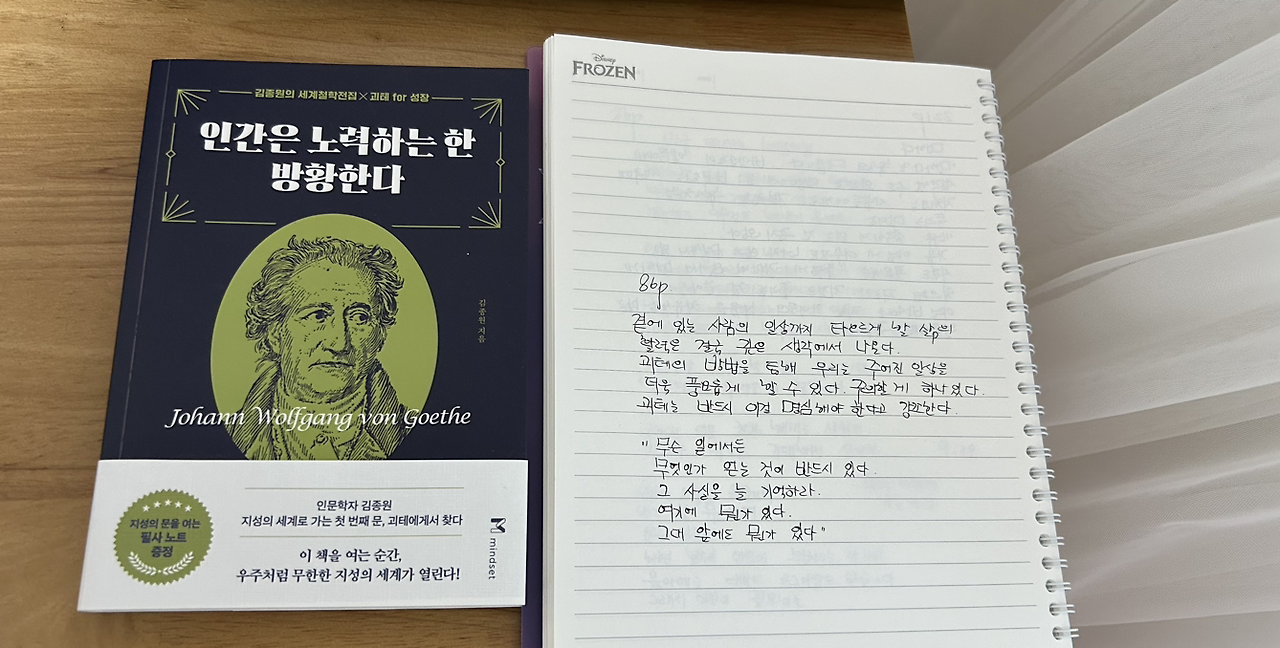 김종원의 세계철학전집×괴테 for 성장
인간은 노력하는 한
방황한다
김종원 지음
Johann Wolfgang von Goethe
지성의 문을 여는
필사 노트
증정
인문학자 김종원
지성의 세계로 가는 첫 번째 문, 괴테에게서 찾다
이 책을 여는 순간,
우주처럼 무한한 지성의 세계가 열린다!
mindset
Disney
FROZEN
86p
곁에 있는 사람의 일상까지 다르게 할 삶의
결국 생각에서 나온다.
괴테의 방법을 통해 우리는 주어진 일상을
더욱 풍요롭게 할 수 있다. 주의할 게 하나 있다.
괴테는 반드시 이걸 명심해야 한다고 강조한다.
"무슨 일에서든
무엇인가 얻는 것이 반드시 있다.
그 사실을 늘 기억하라.
여기에 뭔가 있다.
그대 앞에도 뭔가 있다"